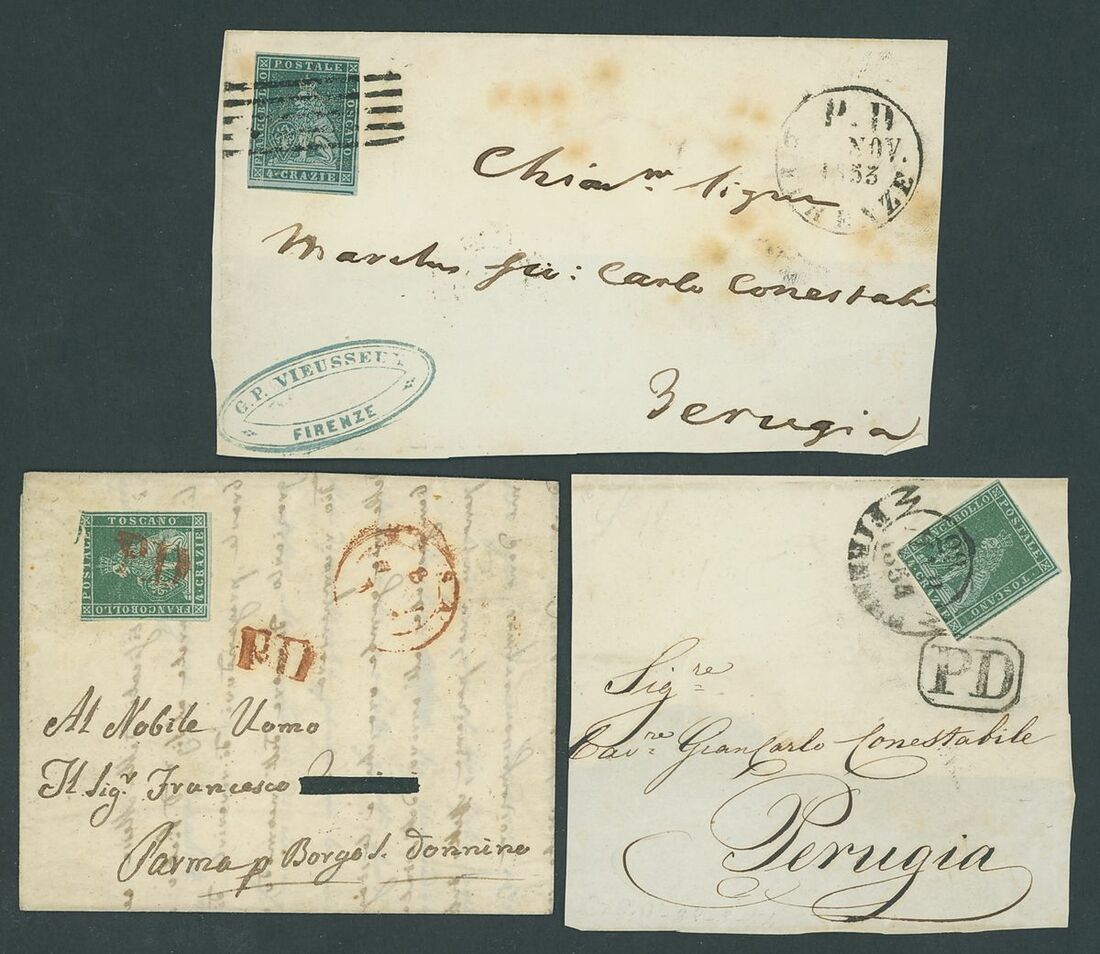 FRANCOBOLLO POSTALE TOSCANO
4 CRAZIE
P. D
NOV.
1853
FIRENZE
Chiar.mo Sigre
Marchese Gio: Carlo Conestabile
Perugia
G. P. VIEUSSEUX
FIRENZE
FRANCOBOLLO POSTALE TOSCANO
4 CRAZIE
PD
PD
Al Nobile Uomo
Il Sigr. Francesco
Parma p Borgo S. Donnino
FRANCOBOLLO POSTALE TOSCANO
4 CRAZIE
FIRENZE
1854
PD
Sigre
Cavre GianCarlo Conestabile
Perugia